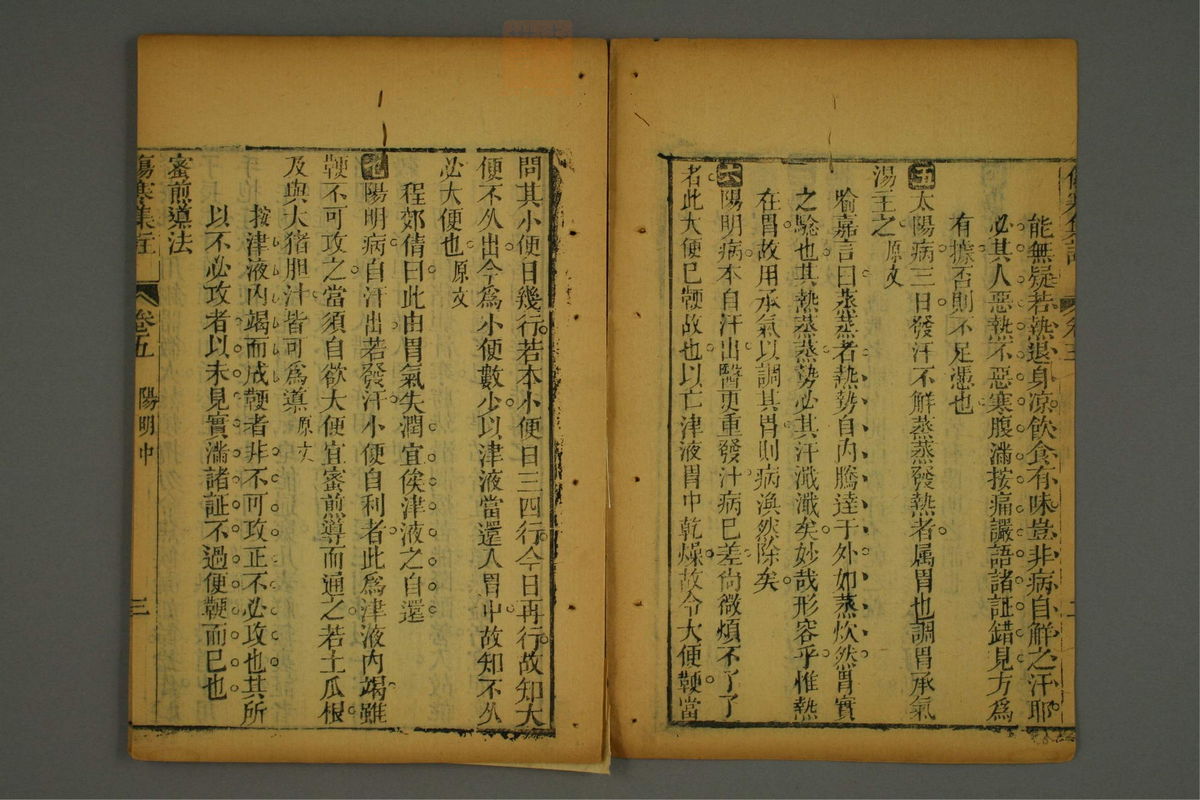 能無疑若熱退身凉飲食有味豈非病自觧之汗耶
必其人惡熱不惡寒腹滿按痛讝語諸証錯見方爲
有據否則不足憑也
五太陽病三日發汗不解蒸蒸發熱者属胃也調胃承氣
湯主之原文
喻嘉言曰蒸蒸者熱勢自内騰達于外如蒸炊然胃實
之騐也其熱蒸蒸勢必其汗濈濈矣妙哉形容乎惟熱
在胃故用承氣以調其胃則病渙然除矣
六陽明病本自汗出醫更重發汁病已差尙微煩不了了
者此大便已鞕故也以亡津液胃中乾燥故令大便鞕當
問其小便日幾行若本小便日三四行今日再行故知大
便不久出今爲小便數少以津液當還入胃中故知不久
必大便也原文
程郊倩曰此由胃氣失潤宜俟津液之自還
陽明病自汗出若發汗小便自利者此爲津液内竭雖
鞕不可攻之當須自欲大便宜蜜煎導而通之若土瓜根
及與大猪胆汁皆可爲導原文
按津液内竭而成鞕者非不可攻正不必攻也其所
以不必攻者以未見實滿諸証不過便鞕而已也
蜜煎導法
傷寒集註 卷五 陽明中 三